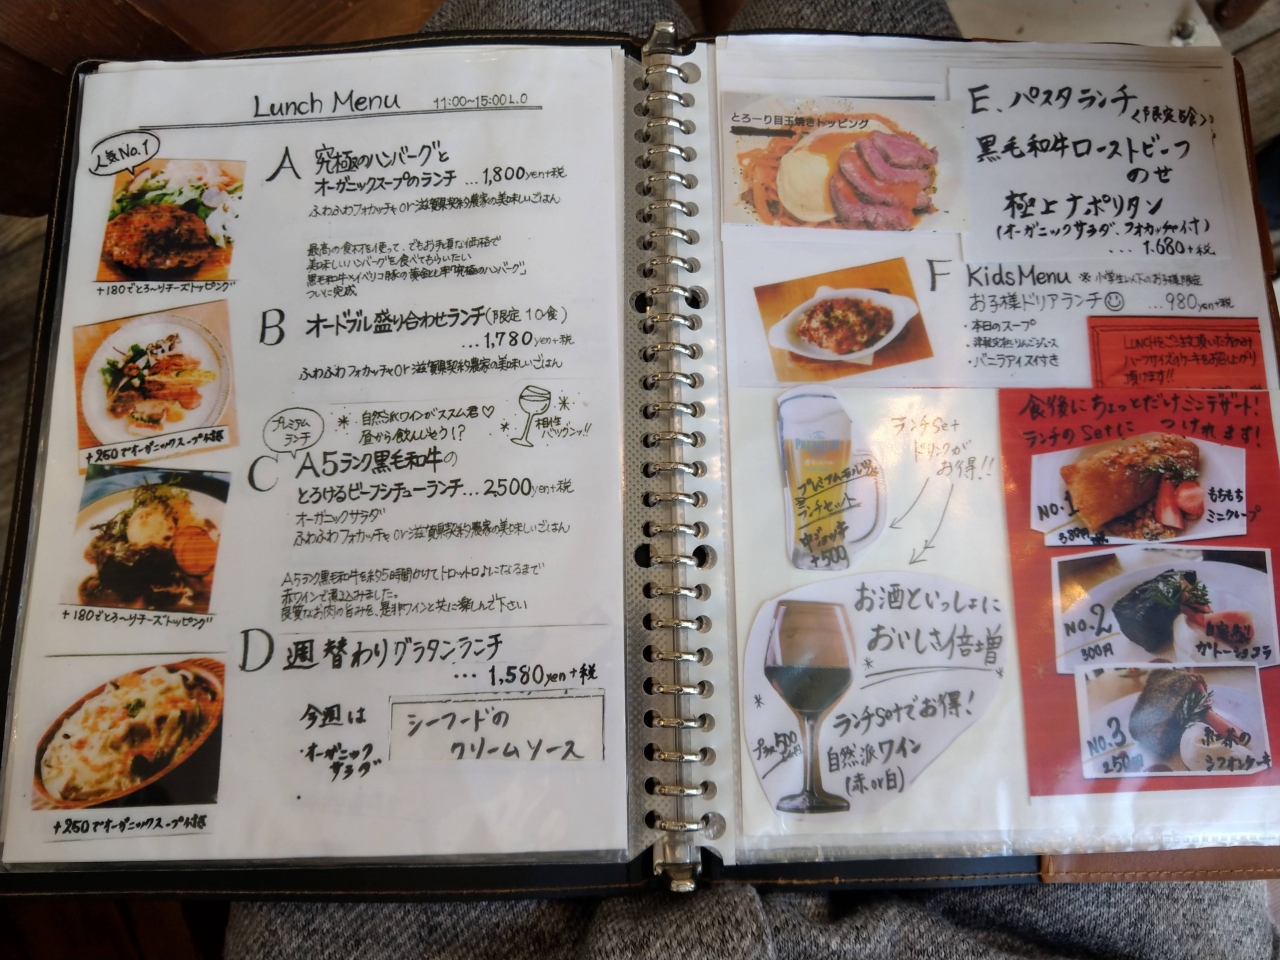 Lunch Menu 11:00~15:00 L.O
人気No.1
A 究極のハンバーグと
オーガニックスープのランチ ...1,800yen+税
ふわふわフォカッチャor滋賀県契約農家の美味しいごはん
美味しいハンバーグを食べてもらいたい
ついに完成
+180でとろ~りチーズトッピング
B オードブル盛り合わせランチ(限定10食)
...1,780yen+税
ふわふわフォカッチャor滋賀県契約農家の美味しいごはん
+250でオーガニックスープ付き
プレミアムランチ
自然派ワインがススム君♡
昼から飲んじゃう!?
相性バツグンッ!!
C A5ランク黒毛和牛の
とろけるビーフシチューランチ...2,500yen+税
オーガニックサラダ
ふわふわフォカッチャor滋賀県契約農家の美味しいごはん
A5ランク黒毛和牛を約5時間かけてトロットロ♪になるまで
赤ワインで煮込みました。
良質なお肉の旨みを、是非ワインと共に楽しんで下さい
+180でとろ~りチーズトッピング
D 週替わりグラタンランチ
...1,580yen+税
今週は
・オーガニックサラダ
シーフードの
クリームソース
+250でオーガニックスープ付き
とろーり目玉焼きトッピング
E、パスタランチ
黒毛和牛ローストビーフ
のせ
極上ナポリタン
(オーガニックサラダ、フォカッチャ付)
...1,680+税
F Kids Menu ※小学生以下のお子様限定
お子様ドリアランチ☺ ...980yen+税
・本日のスープ
・津軽完熟りんごジュース
・バニラアイス付き
LUNCHをご注文頂いた方のみ
ハーフサイズのケーキもお召し上がり
頂けます!!
ランチSet
ドリンクが
お得!!
ランチセット
中ジョッキ
+500
お酒といっしょに
おいしさ倍増
ランチSetでお得!
プラス500
自然派ワイン
(赤or白)
食後にちょっとだけミニデザート!
ランチのSetに つけれます!
NO.1
もちもち
ミニクレープ
NO.2
300円
自家製
ガトーショコラ
NO.3
250円
紅茶の
シフォンケーキ